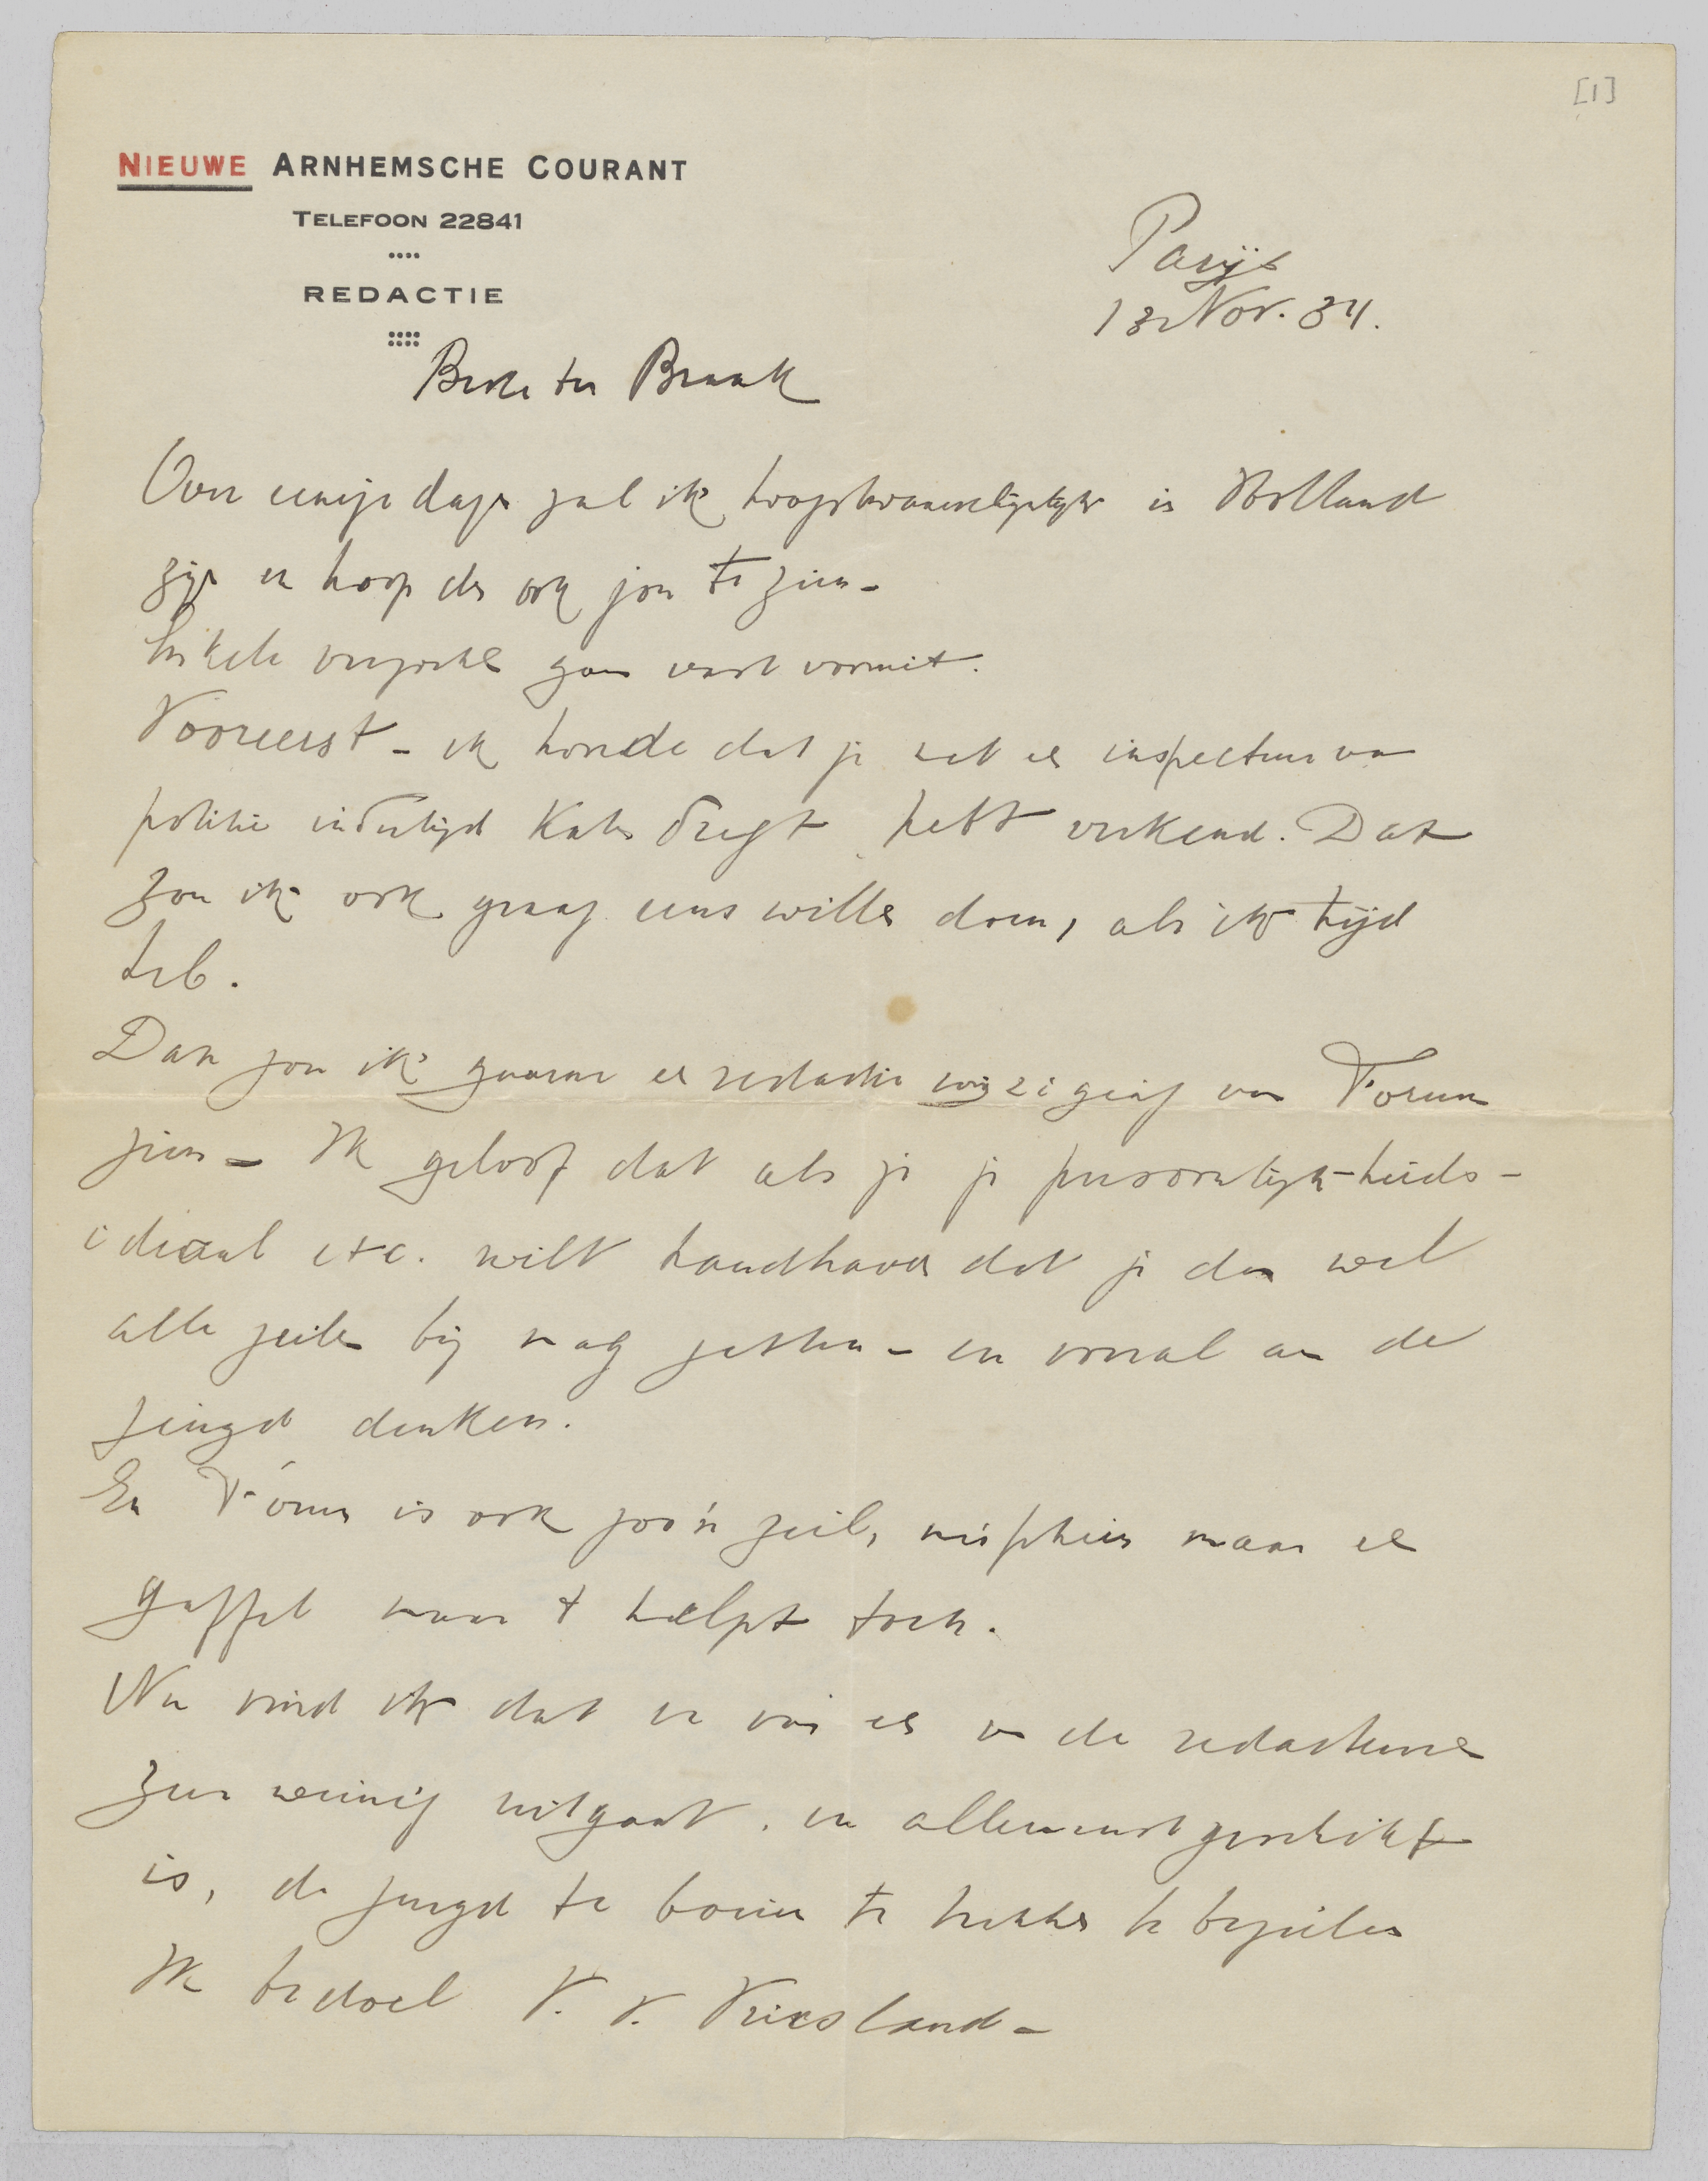 [1]
NIEUWE ARNHEMSCHE COURANT
TELEFOON 22841
REDACTIE
Parijs
13 Nov. 34.
Beste ter Braak
Over eenige dagen zal ik hoogstwaarschijnlijk in Holland
zijn en hoop dan ook jou te zien –
Enkele verzoeken gaan vast vooruit.
Vooreerst – ik hoorde dat je met een inspecteur van
politie indertijd Katendregt hebt verkend. Dat
zou ik ook graag eens willen doen, als ik tijd
heb.
Dan zou ik gaarne een redactie wijziging van Forum
zien – Ik geloof dat als je je persoonlijk-heids-
ideaal etc. wilt handhaven dat je dan wel
alle zeilen bij mag zetten – en vooral aan de
jeugd denken.
En Forum is ook zoo'n zeil, misschien maar een
gaffel maar 't helpt toch.
Nu vind ik dat er van een van de redacteuren
zeer weinig uitgaat, en allerminst geschikt
is, de jeugd te boeien te trekken te bezielen
Ik bedoel V. v. Vriesland –